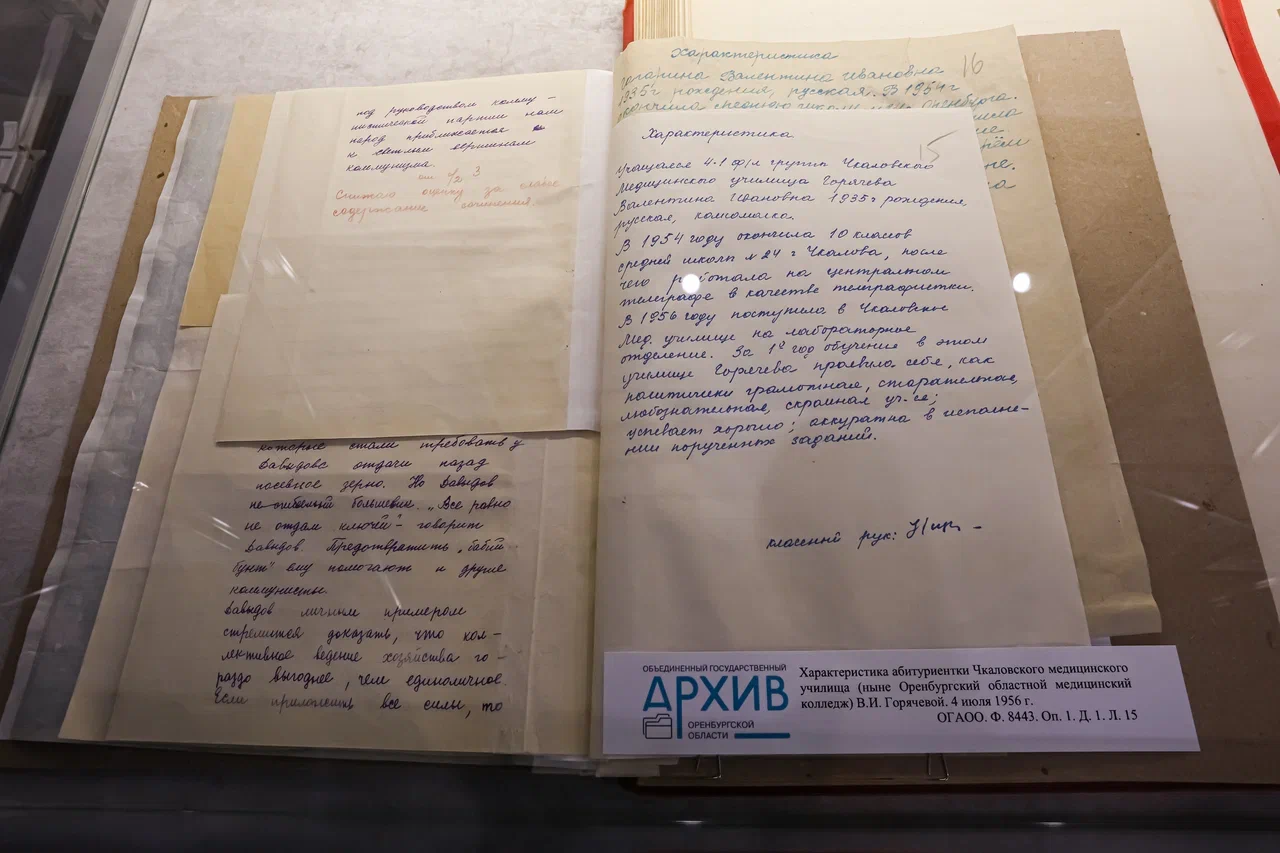 под руководством комму-
нистической партии наш
народ приближается
к светлым вершинам
коммунизма.
3
Считаю оценку за
содержание сочинения.
которые стали требовать у
Давыдова отдачи назад
посевное зерно. Но Давыдов
большевик. „Все равно
не отдам ключей" - говорит
Давыдов. Предотвратить „бабий
бунт" ему помогают и другие
коммунисты.
Давыдов личным примером
стремится доказать, что кол-
лективное ведение хозяйства го-
раздо выгоднее, чем единоличное.
Если приложить все силы, то
Характеристика
16
Гагарина Валентина Ивановна
1935 г рождения, русская. В 1954 г
окончила среднюю школу Оренбурга.
Характеристика
15
Учащаяся 4-1 ф/л группы Чкаловского
Медицинского училища Горячева
Валентина Ивановна 1935 г рождения,
русская, комсомолка.
В 1954 году окончила 10 классов
средней школы № 24 г Чкалова, после
чего работала на центральном
телеграфе в качестве телеграфистки.
В 1956 году поступила в Чкаловское
Мед. училище на лабораторное
отделение. За 1й год обучения в этом
училище Горячева проявила себя, как
политически грамотная, старательная,
любознательная, скромная уч-ся;
успевает хорошо; аккуратна в исполне-
нии порученных заданий.
классный рук:
ОБЪЕДИНЕННЫЙ ГОСУДАРСТВЕННЫЙ
АРХИВ
ОРЕНБУРГСКОЙ
ОБЛАСТИ
Характеристика абитуриентки Чкаловского медицинского
училища (ныне Оренбургский областной медицинский
колледж) В.И. Горячевой. 4 июля 1956 г.
ОГАОО. Ф. 8443. Оп. 1. Д. 1. Л. 15